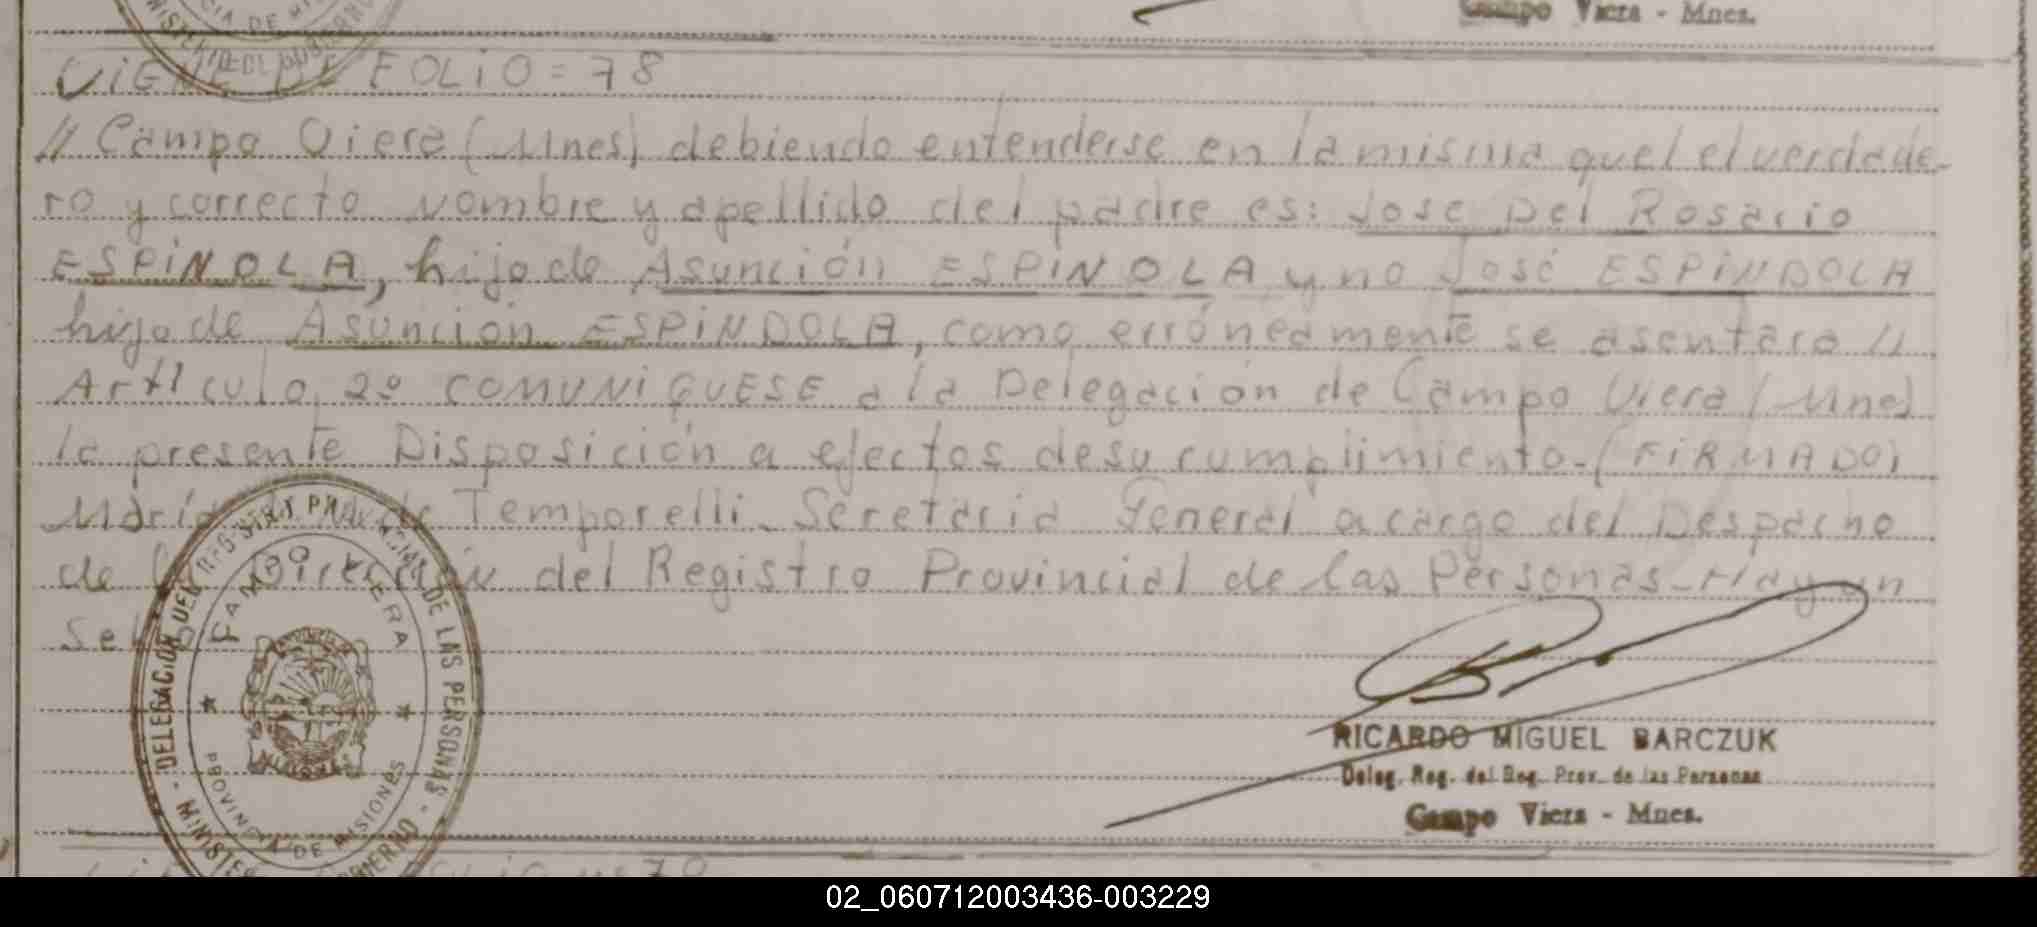 Campo Viera - Mnes.
VIENE DE FOLIO = 78
// Campo Viera (Mnes) debiendo entenderse en la misma quel el verdade-
ro y correcto nombre y apellido del padre es: Jose Del Rosario
ESPiNOLA, hijo de Asunción ESPiNOLA y no José ESPiNDOLA
hijo de Asunción ESPiNDOLA, como erróneamente se asentara //
Artículo 2º COMUNiQUESE a la Delegación de Campo Viera (Mnes)
la presente Disposición a efectos de su cumplimiento.- (FiRMADO)
María Temporelli. Secretaria General a cargo del Despacho
de la Dirección del Registro Provincial de las Personas - Hay un
Sello
MINISTERIO GOBIERNO - DELEGACION REGISTRO PROVINCIAL DE LAS PERSONAS -
CAMPO VIERA
PROVINCIA DE MISIONES
RICARDO MIGUEL BARCZUK
Deleg. Reg. del Reg. Prov. de las Personas
Campo Viera - Mnes.
02_060712003436-003229